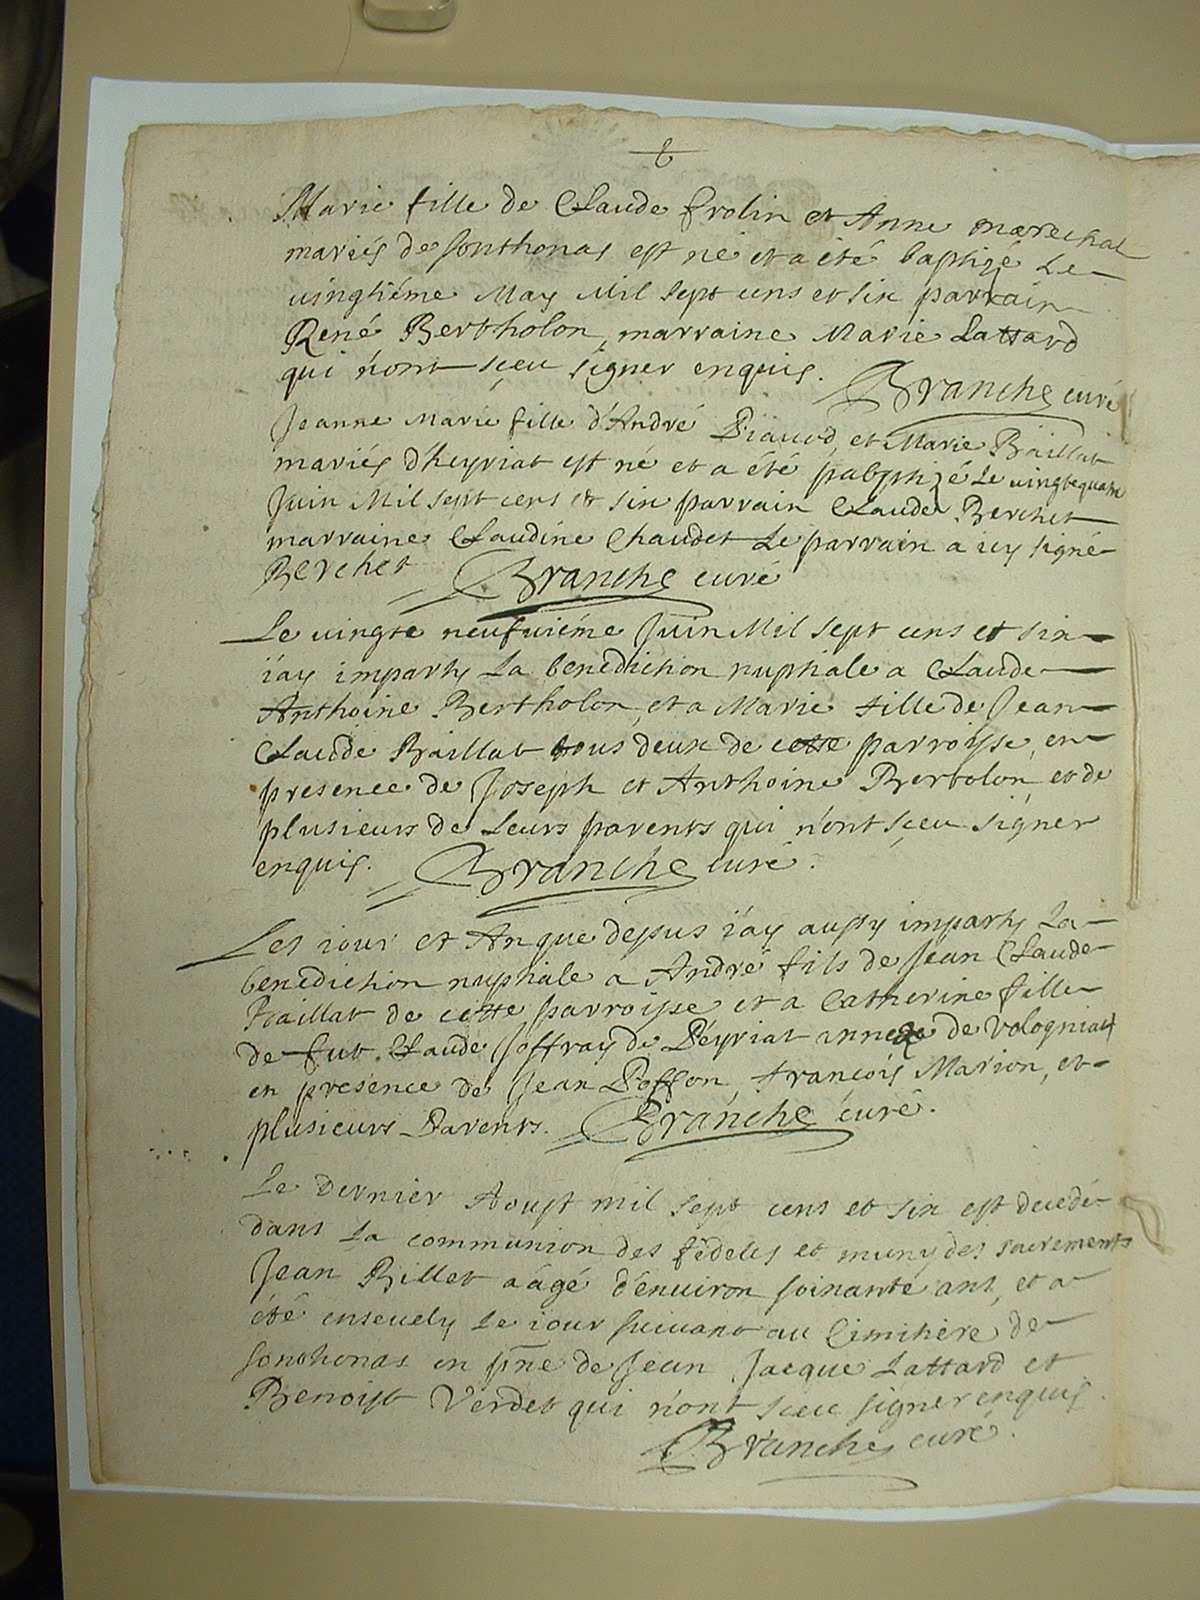 6
Marie fille de Claude frolin et Anne marechal
mariés de sonthonas est né et a été baptizé Le
vingtiéme May Mil sept cens et six parrain
René Bertholon, marraine Marie Lattard
qui n'ont sçeu signer enquis. Branche curé
Jeanne Marie fille d'André et Marie Baillat
mariés d'heyriat est né et a été pabptizé Le vingtequatre
Juin Mil sept cens et six parrain Claude Berchet
marraine Claudine Chaudet Le parrain a icy signé
Berchet Branche curé
Le vingte neufviéme Juin Mil sept cens et six
i'ay imparty La benediction nuptiale a Claude
Anthoine Bertholon, et a Marie fille de Jean
Claude Baillat tous deux de cette parroisse, en
presence de Joseph et Anthoine Bertolon, et de
plusieurs de Leurs parents qui n'ont sçeu signer
enquis. Branche curé.
Les iour et An que dessus i'ay aussy imparty La
benediction nuptiale a André fils de Jean Claude
Baillat de cette parroisse, et a Catherine fille
de fut Claude Joffray de Peyriat annexe de Vologniat
en presence de Jean françois Marion, et
plusieurs Parents. Branche curé.
Le dernier Aoust mil sept cens et six est decedé
dans La communion des fideles et muny des sacrements
Jean Billet aâgé d'environ soixante ans, et a
été ensevely Le iour suivant au Cimitiére de
sonthonas en pñe de Jean Jacque Lattard et
Benoist Verdet qui n'ont sceu signer enquis.
Branche curé.